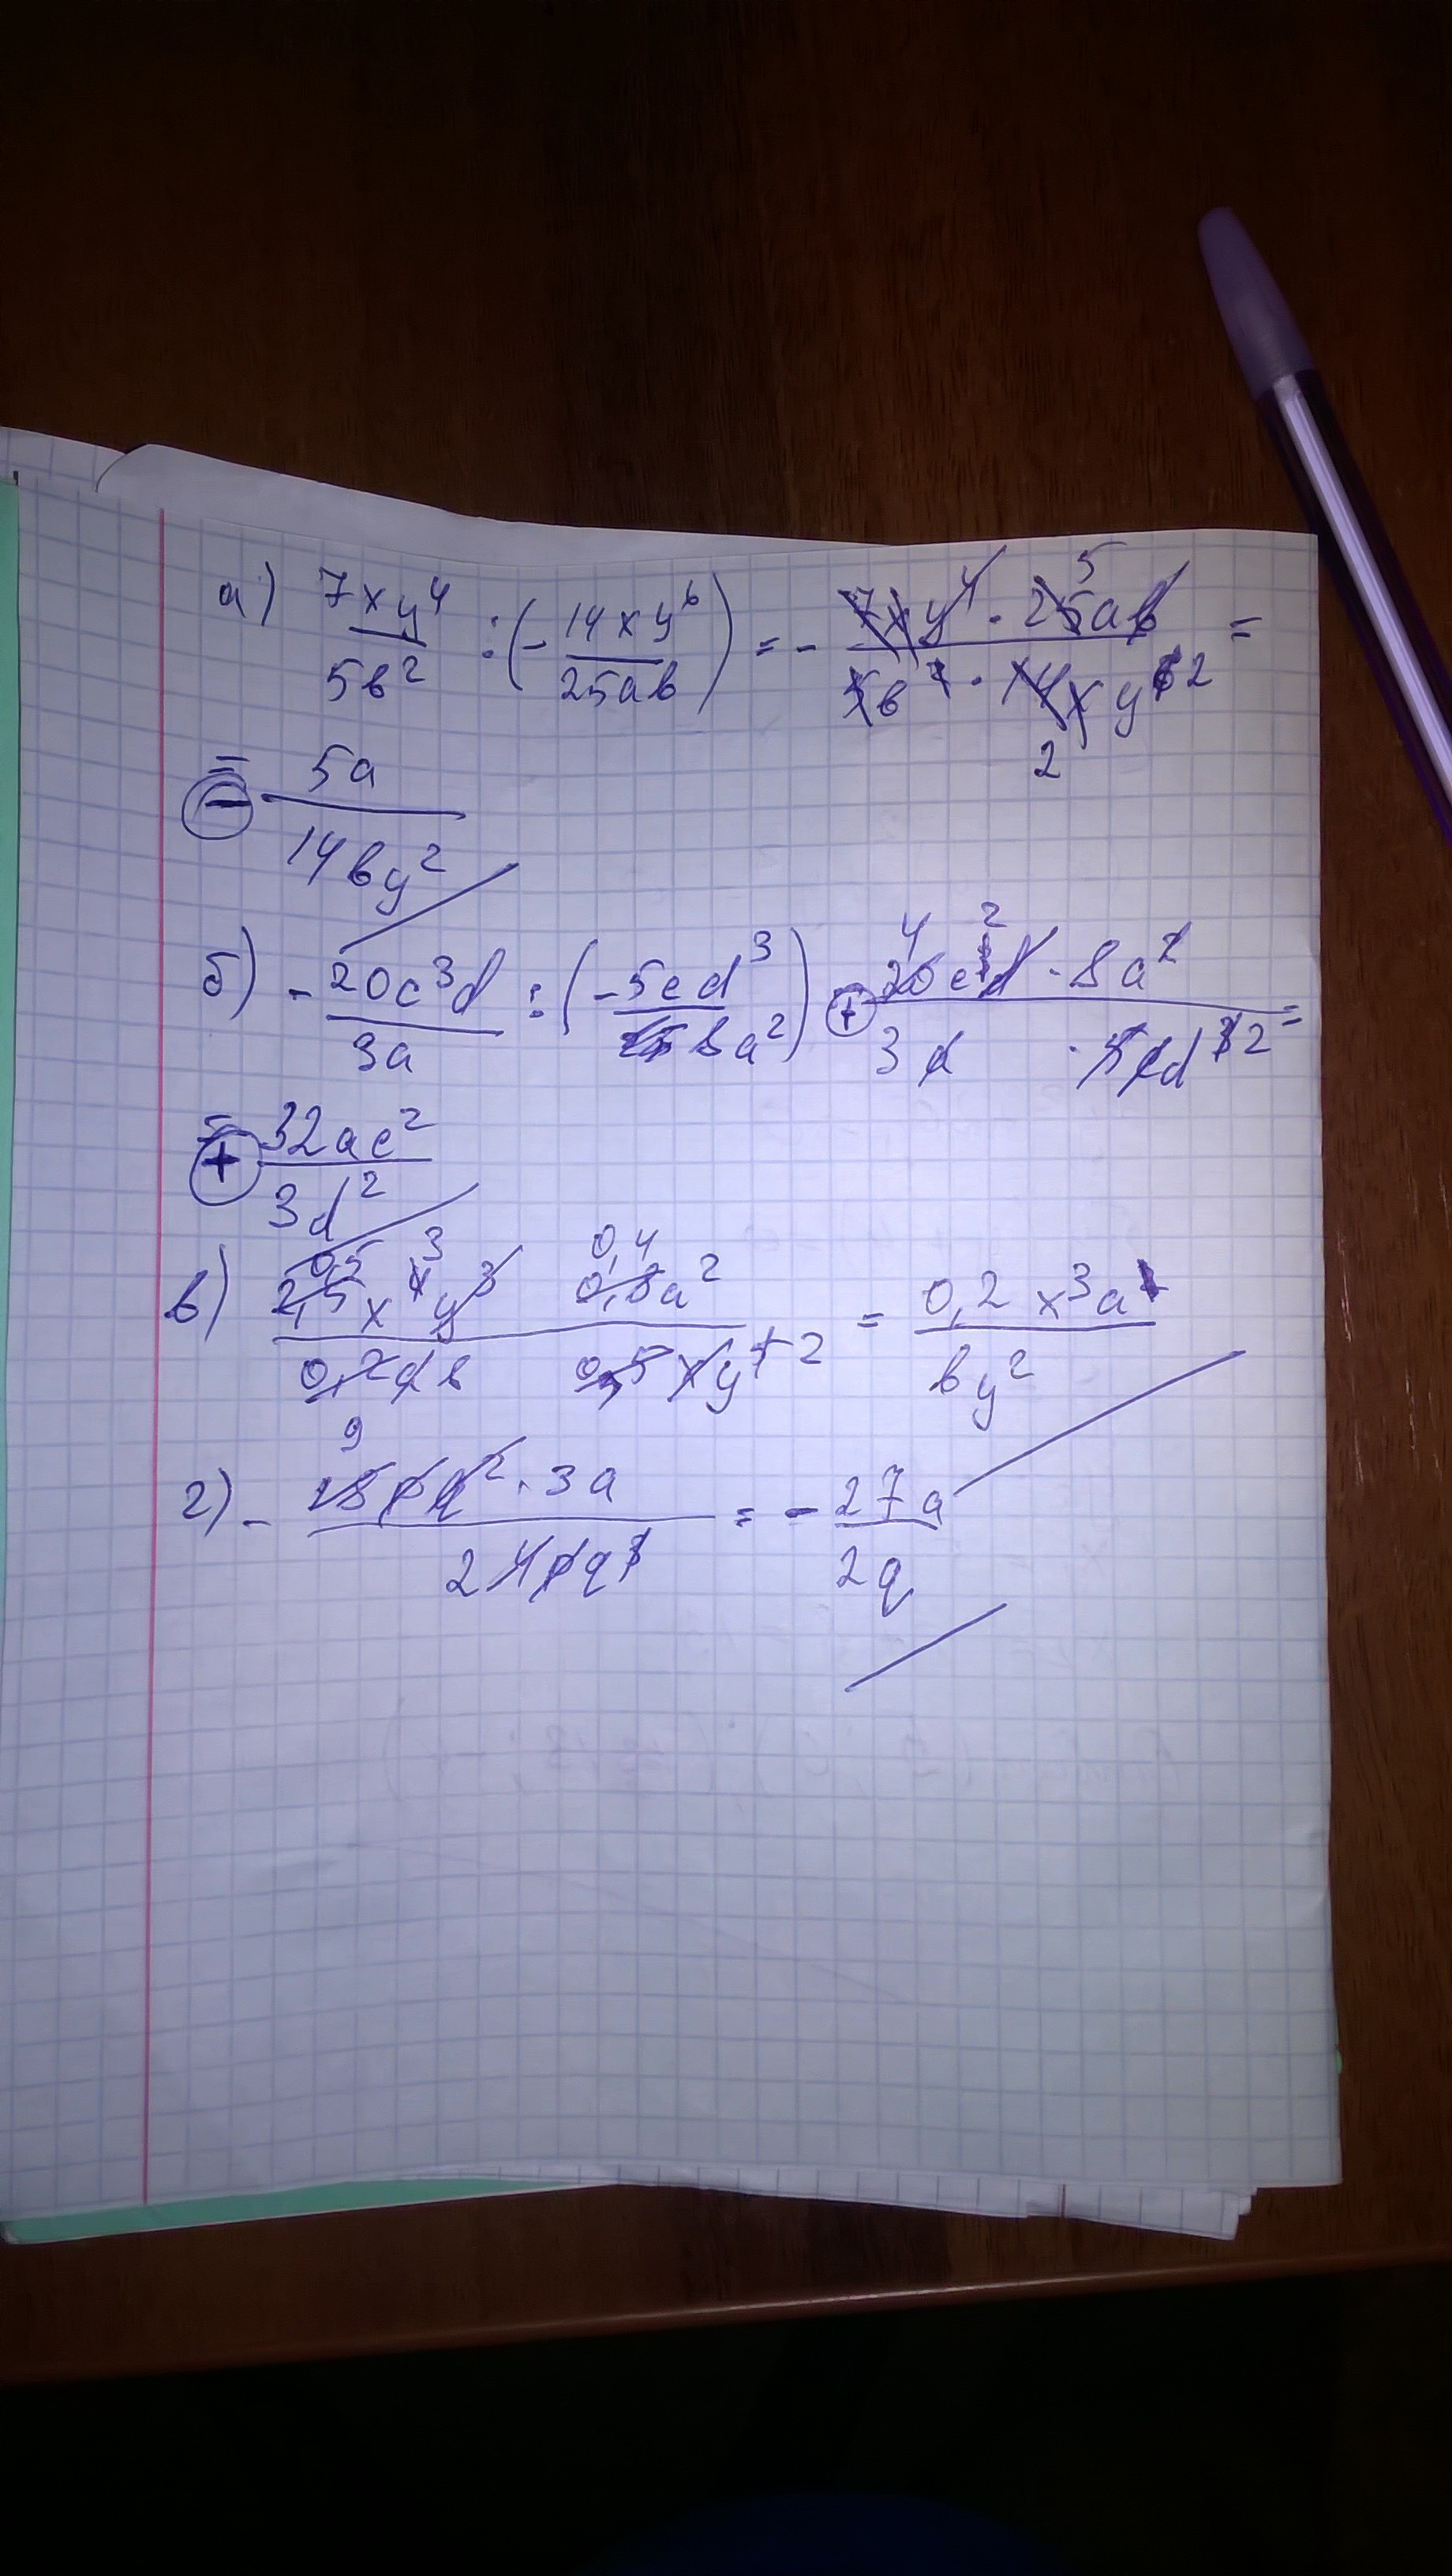 а) 7xy⁴/5b² : (- 14xy⁶/25ab) = - 7xy⁴ · 25ab 5 / 5b² · 14xy⁶ 2 2 =
= - 5a/14by²
б) - 20c³d/3a : (- 5cd³/8a²) + 4 20c³d 2 · 8a² / 3a · 5cd³ 2 =
= + 32ac²/3d²
в) 0,5 2,5x⁴y³ 3 0,4 0,8a² / 0,2ab 0,5xy⁵ 2 = 0,2x³a/by²
г) - 9 18pq² · 3a / 2 4pq³ = - 27a/2q